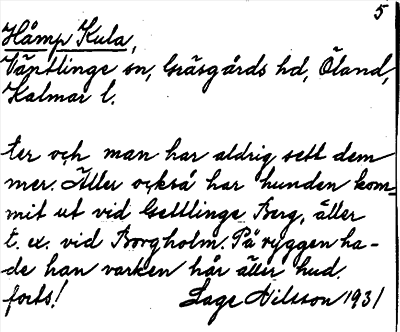 5
Håmp Kula,
Väntlinge sn, Gräsgårds hd, Öland,
Kalmar l.
ter och man har aldrig sett dem
mer. Äller också har hunden kom=
mit ut vid Gettlinge Berg, äller
t. ex. vid Borgholm. På ryggen ha-
de han varken hår äller hud.
forts! Lage Nilsson 1931